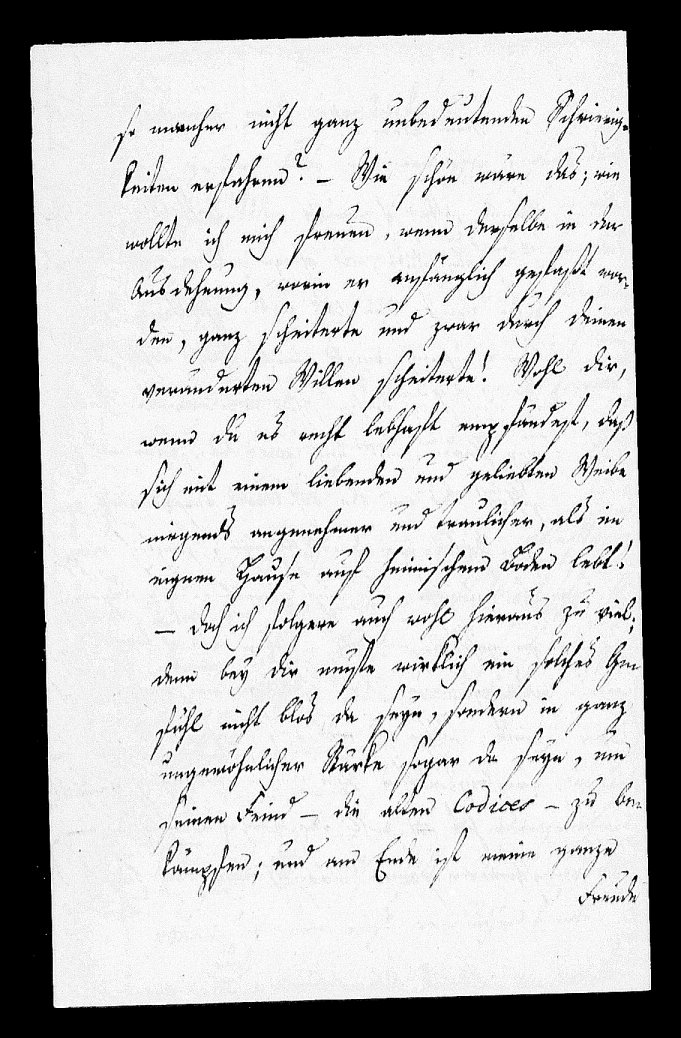 so mancher nicht ganz unbedeutenden Schwierig-
keiten erfahren? – Wie schön wäre das; wie
wollte ich mich freuen, wenn derselbe in der
Ausdehnung, worin er anfänglich gefaßt wor-
den, ganz scheiterte und zwar durch deinen
veränderten Willen scheiterte! Wohl dir,
wenn du es recht lebhaft empfändest, daß
sich mit einem liebenden und geliebten Weibe
nirgends angenehmer und traulicher, als im
eignen Hause auf heimischem Boden lebt!
– Doch ich folgere auch wohl hieraus zu viel;
denn bey dir müste wirklich ein solches Ge-
fühl nicht blos da seyn, sondern in ganz
ungewöhnlicher Stärke sogar da seyn, um
seinen Feind – die alten Codices – zu be-
kämpfen; und am Ende ist meine ganze
Freude